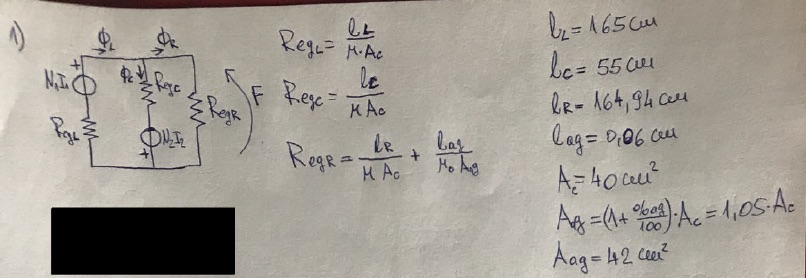 1)
ϕL ϕR
N1I1 ϕC RegC
RegL N2I2 RegR F
+ +
RegL = lL / μ·Ac
RegC = lc / μ Ac
RegR = lR / μ Ac + lag / μ0 Ag
lL = 165 cm
lc = 55 cm
lR = 164,94 cm
lag = 0,06 cm
Ac = 40 cm²
Aag = (1 + %ag / 100)·Ac = 1,05·Ac
Aag = 42 cm²